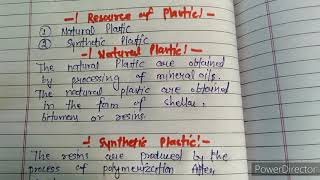 -! Resource of Plastic!-
① Natural Plastic
② Synthetic Plastic
-! Natural Plastic!-
The natural Plastic are obtained
by processing of mineral oils.
The natural plastic are obtained
in the form of shellac,
bitumen or resins.
-! Synthetic Plastic!-
The resins are produced by the
process of polymerization After,
PowerDirector